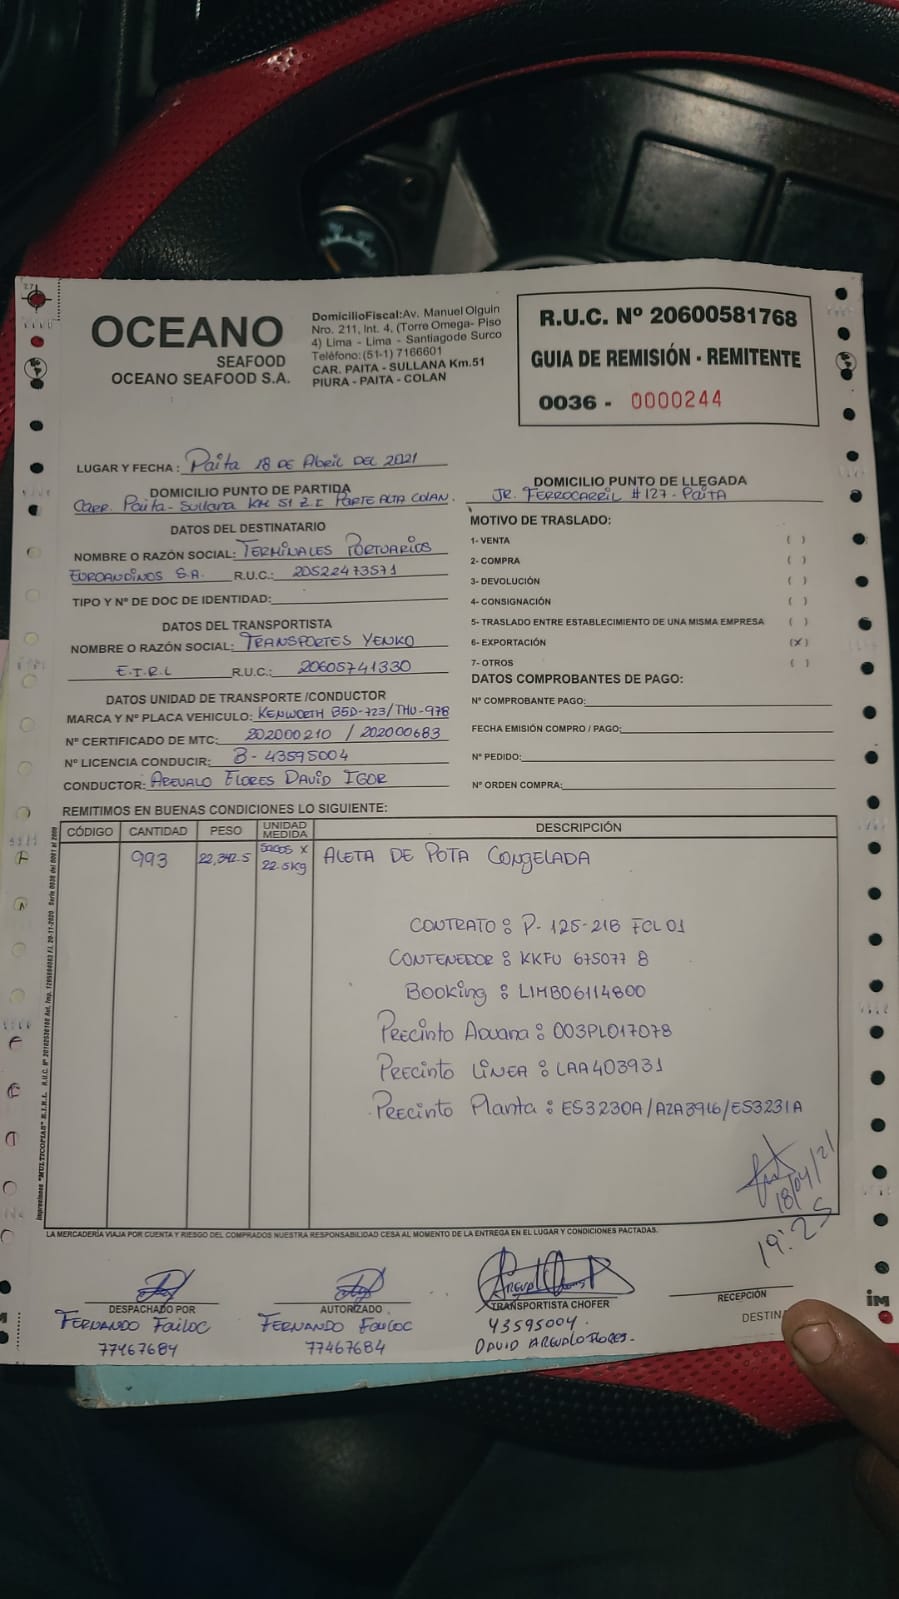 OCEANO
SEAFOOD
OCEANO SEAFOOD S.A.
DomicilioFiscal:Av. Manuel Olguin
Nro. 211, Int. 4, (Torre Omega- Piso
4) Lima - Lima - Santiagode Surco
Teléfono:(51-1) 7166601
CAR. PAITA - SULLANA Km.51
PIURA - PAITA - COLAN
R.U.C. Nº 20600581768
GUIA DE REMISIÓN - REMITENTE
0036 - 0000244
LUGAR Y FECHA : Paita 18 DE Abril DEL 2021
DOMICILIO PUNTO DE PARTIDA
Carr. Paita - Sullana KM 51 Z.I PARTE ALTA COLAN.
DOMICILIO PUNTO DE LLEGADA
JR. FERROCARRIL # 127 - PAITA
DATOS DEL DESTINATARIO
NOMBRE O RAZÓN SOCIAL: TERMINALES PORTUARIOS
EUROANDINOS S.A. R.U.C.: 20522473571
TIPO Y Nº DE DOC DE IDENTIDAD:
DATOS DEL TRANSPORTISTA
NOMBRE O RAZÓN SOCIAL: TRANSPORTES YENKO
E.I.R.L R.U.C.: 20605741330
DATOS UNIDAD DE TRANSPORTE /CONDUCTOR
MARCA Y Nº PLACA VEHICULO: KENWORTH B5D-723/THU-978
Nº CERTIFICADO DE MTC: 202000210 / 202000683
Nº LICENCIA CONDUCIR: B - 43595004
CONDUCTOR: AREVALO FLORES DAVID IGOR
MOTIVO DE TRASLADO:
1- VENTA ( )
2- COMPRA ( )
3- DEVOLUCIÓN ( )
4- CONSIGNACIÓN ( )
5- TRASLADO ENTRE ESTABLECIMIENTO DE UNA MISMA EMPRESA ( )
6- EXPORTACIÓN (X)
7- OTROS ( )
DATOS COMPROBANTES DE PAGO:
Nº COMPROBANTE PAGO:
FECHA EMISIÓN COMPRO / PAGO:
Nº PEDIDO:
Nº ORDEN COMPRA:
REMITIMOS EN BUENAS CONDICIONES LO SIGUIENTE:
CÓDIGO CANTIDAD PESO UNIDAD MEDIDA DESCRIPCIÓN
993 22,342.5 SACOS X 22.5Kg ALETA DE POTA CONGELADA
CONTRATO : P- 125-21B FCL 01
CONTENEDOR : KKFU 675077 8
Booking : LIMB06114800
Precinto ADUANA : 003PL017078
Precinto LINEA : LAA403931
Precinto Planta : ES3230A/AZA3916/ES3231A
18/04/21
19:25
LA MERCADERÍA VIAJA POR CUENTA Y RIESGO DEL COMPRADOS NUESTRA RESPONSABILIDAD CESA AL MOMENTO DE LA ENTREGA EN EL LUGAR Y CONDICIONES PACTADAS.
DESPACHADO POR
FERNANDO Failoc
77467684
AUTORIZADO
FERNANDO Failoc
77467684
TRANSPORTISTA CHOFER
43595004.
DAVID AREVALO FLORES.
RECEPCIÓN
DESTIN
iM